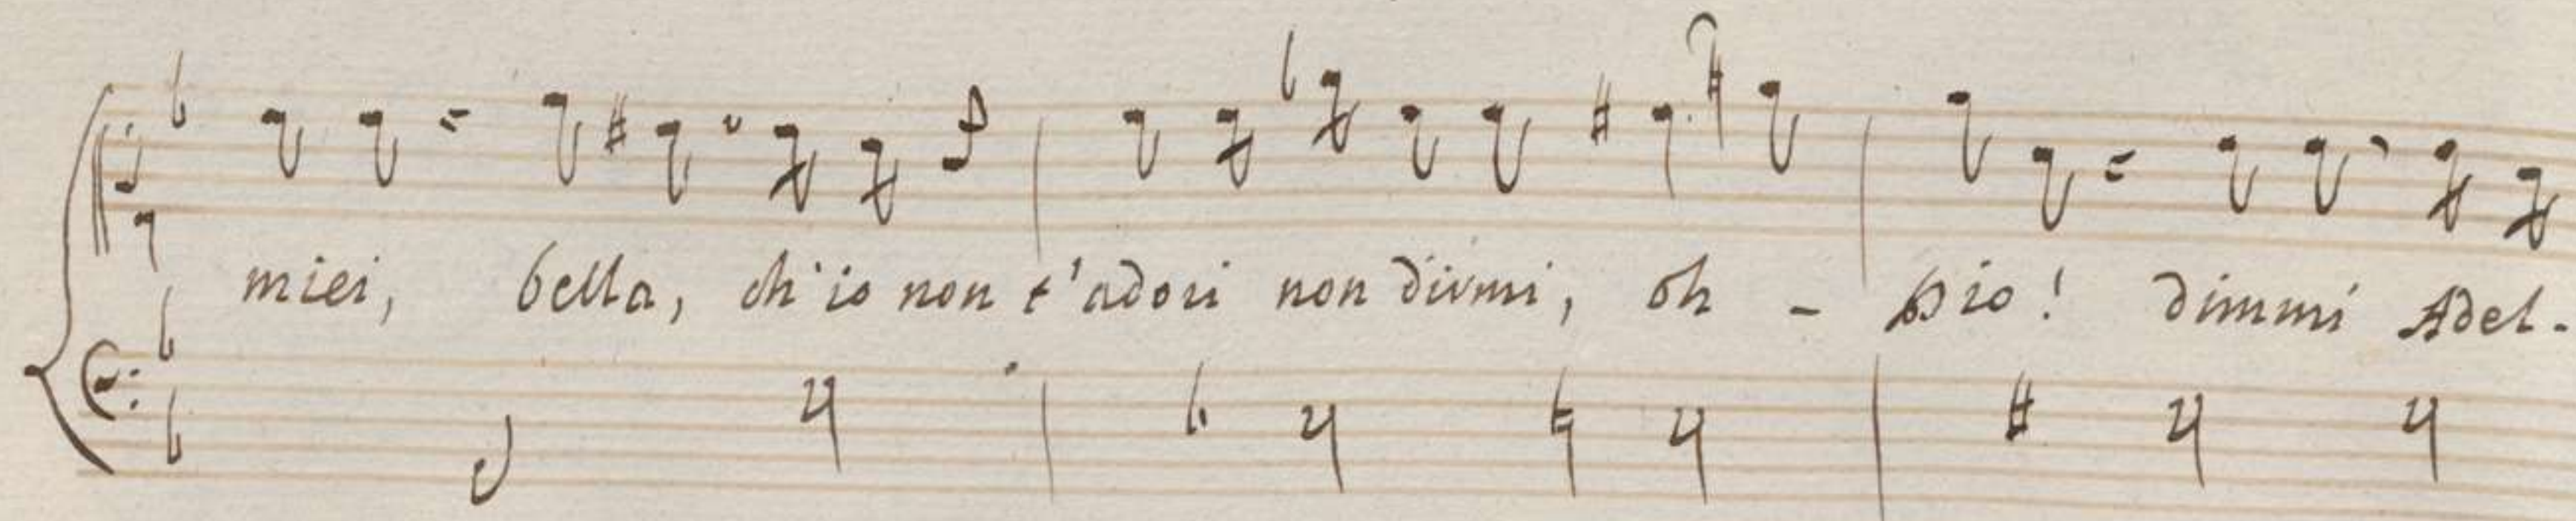 miei, bella, ch'io non t'adori non dirmi, oh - Dio! dimmi Adel-